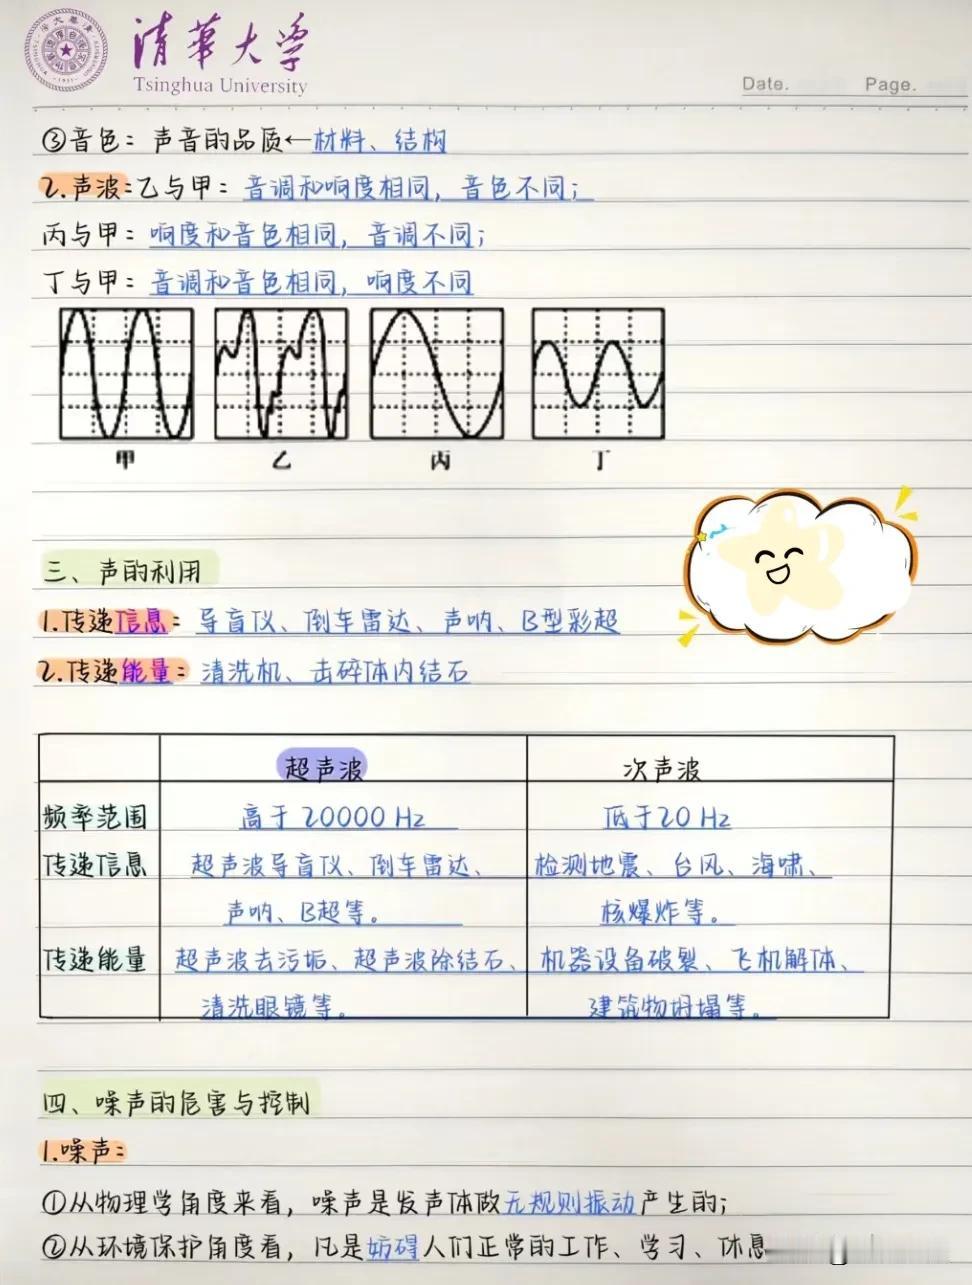 清華大学
Tsinghua University
Date. Page.
③音色：声音的品质←材料、结构
2.声波：乙与甲：音调和响度相同，音色不同；
丙与甲：响度和音色相同，音调不同；
丁与甲：音调和音色相同，响度不同
甲 乙 丙 丁
三、声的利用
1.传递信息：导盲仪、倒车雷达、声呐、B型彩超
2.传递能量：清洗机、击碎体内结石
超声波 次声波
频率范围 高于20000Hz 低于20Hz
传递信息 超声波导盲仪、倒车雷达、 检测地震、台风、海啸、
声呐、B超等。 核爆炸等。
传递能量 超声波去污垢、超声波除结石、 机器设备破裂、飞机解体、
清洗眼镜等。 建筑物坍塌等。
四、噪声的危害与控制
1.噪声：
①从物理学角度来看，噪声是发声体做无规则振动产生的；
②从环境保护角度看，凡是妨碍人们正常的工作、学习、休息